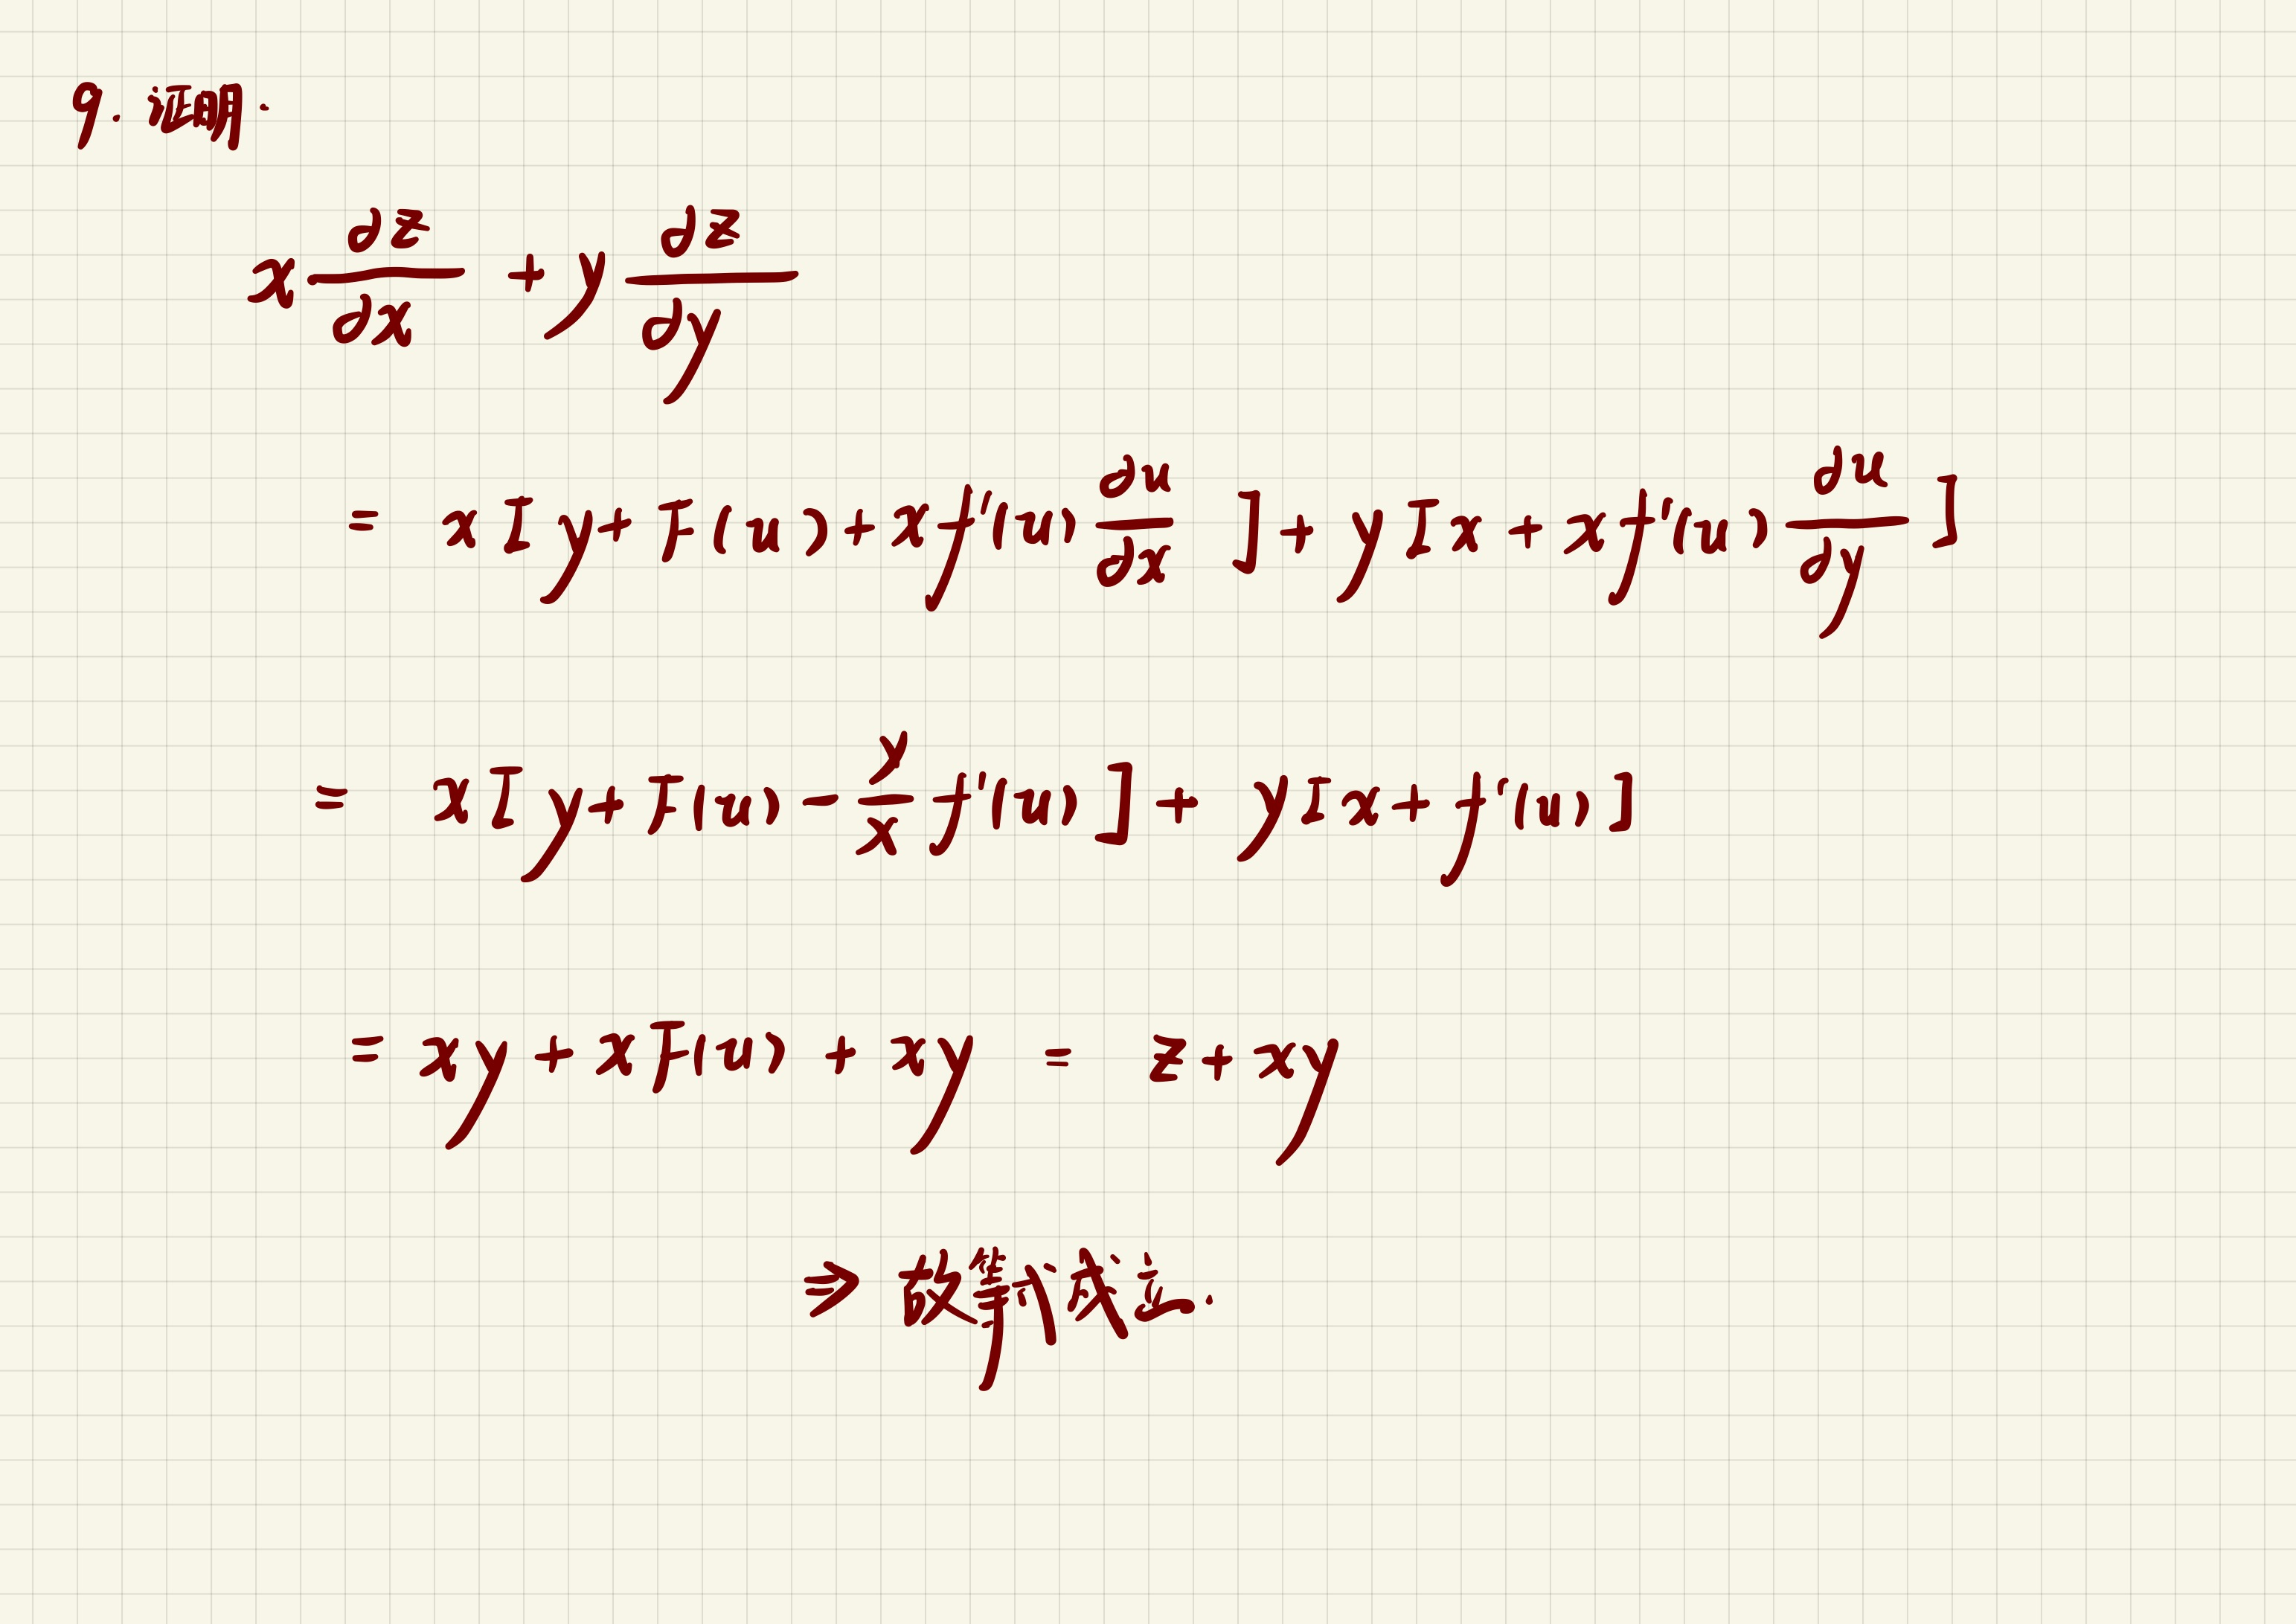 9. 证明.
x ∂z/∂x + y ∂z/∂y
= x[y+F(u)+xf'(u) ∂u/∂x]+y[x+xf'(u) ∂u/∂y]
= x[y+F(u)-y/x f'(u)]+y[x+f'(u)]
= xy+xF(u)+xy = z+xy
⇒ 故等式成立.